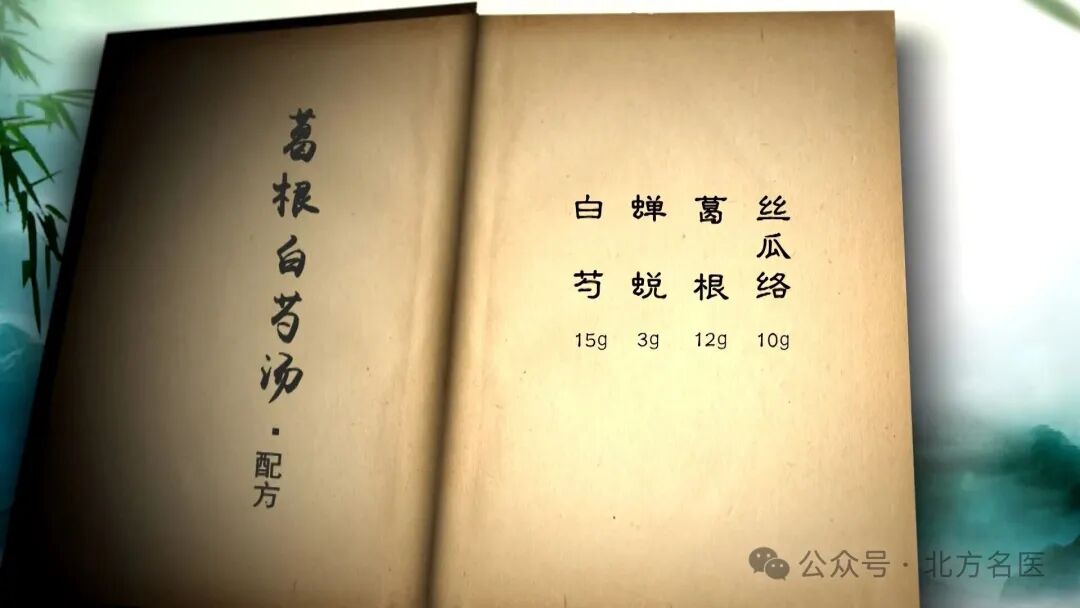 葛根白芍汤·配方
丝瓜络 10g
葛根 12g
蝉蜕 3g
白芍 15g
公众号·北方名医